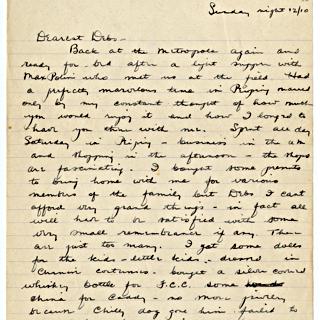 Sunday night 12/10
Dearest Debs-
Back at the Metropole again and
ready for bed after a light supper with
Max Polin who met us at the field. Had
a perfectly marvelous time in Peiping marred
only by my constant thought of how much
you would enjoy it and how I longed to
have you there with me. Spent all day
Saturday in Peiping - business in the AM
and shopping in the afternoon - the shops
are fascinating. I bought some presents
to bring home with me for various
members of the family but Debs I can't
afford very grand things - in fact all
will have to be satisfied with some
very small remembrance if any. There
are just too many. I got some dolls
for the kids - little kids - dressed in
Chinese costumes. bought a silver
whiskey bottle for F.C.C. some
china for - no more jewelry
because day gone him failed to